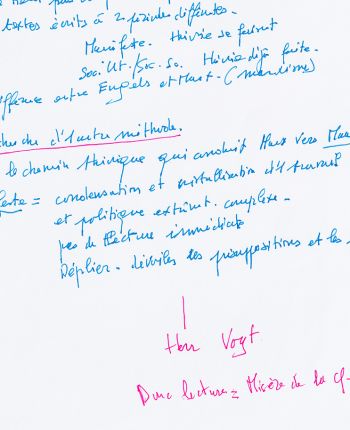 textes écrits à 2 périodes différentes.
Manifeste. Théorie se faisant
Soc. Ut. / Soc. Sc. Théorie déjà faite.
différence entre Engels et Marx. (marxisme)
d'1 autre méthode.
le chemin théorique qui conduit Marx vers
= condensation et cristallisation d'1 travail
et politique extrêmt. complexe.
pas de lecture immédiate
Déplier. dévoiler les présuppositions et les
Herr Vogt
Donc lecture = Misère de la φ